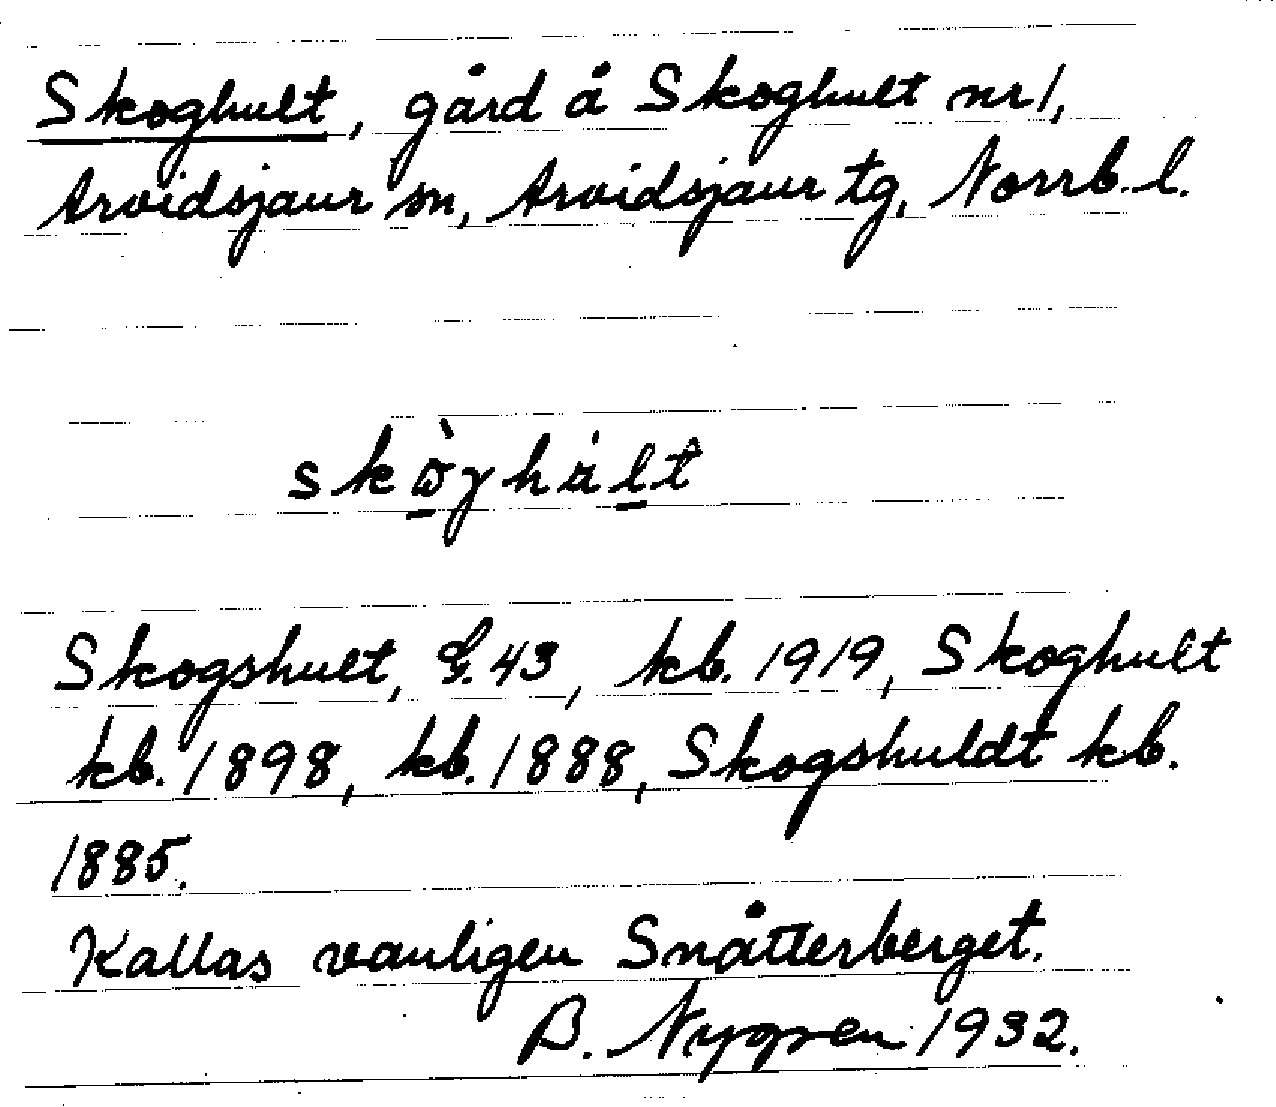 Skoghult, gård å Skoghult nr 1,
Arvidsjaur sn, Arvidsjaur tg, Norrb. l.
Skogshult, G. 43, kb. 1919, Skoghult
kb. 1898, kb. 1888, Skogshuldt kb.
1885.
Kallas vanligen Snåtterberget.
B. Nygren 1932.